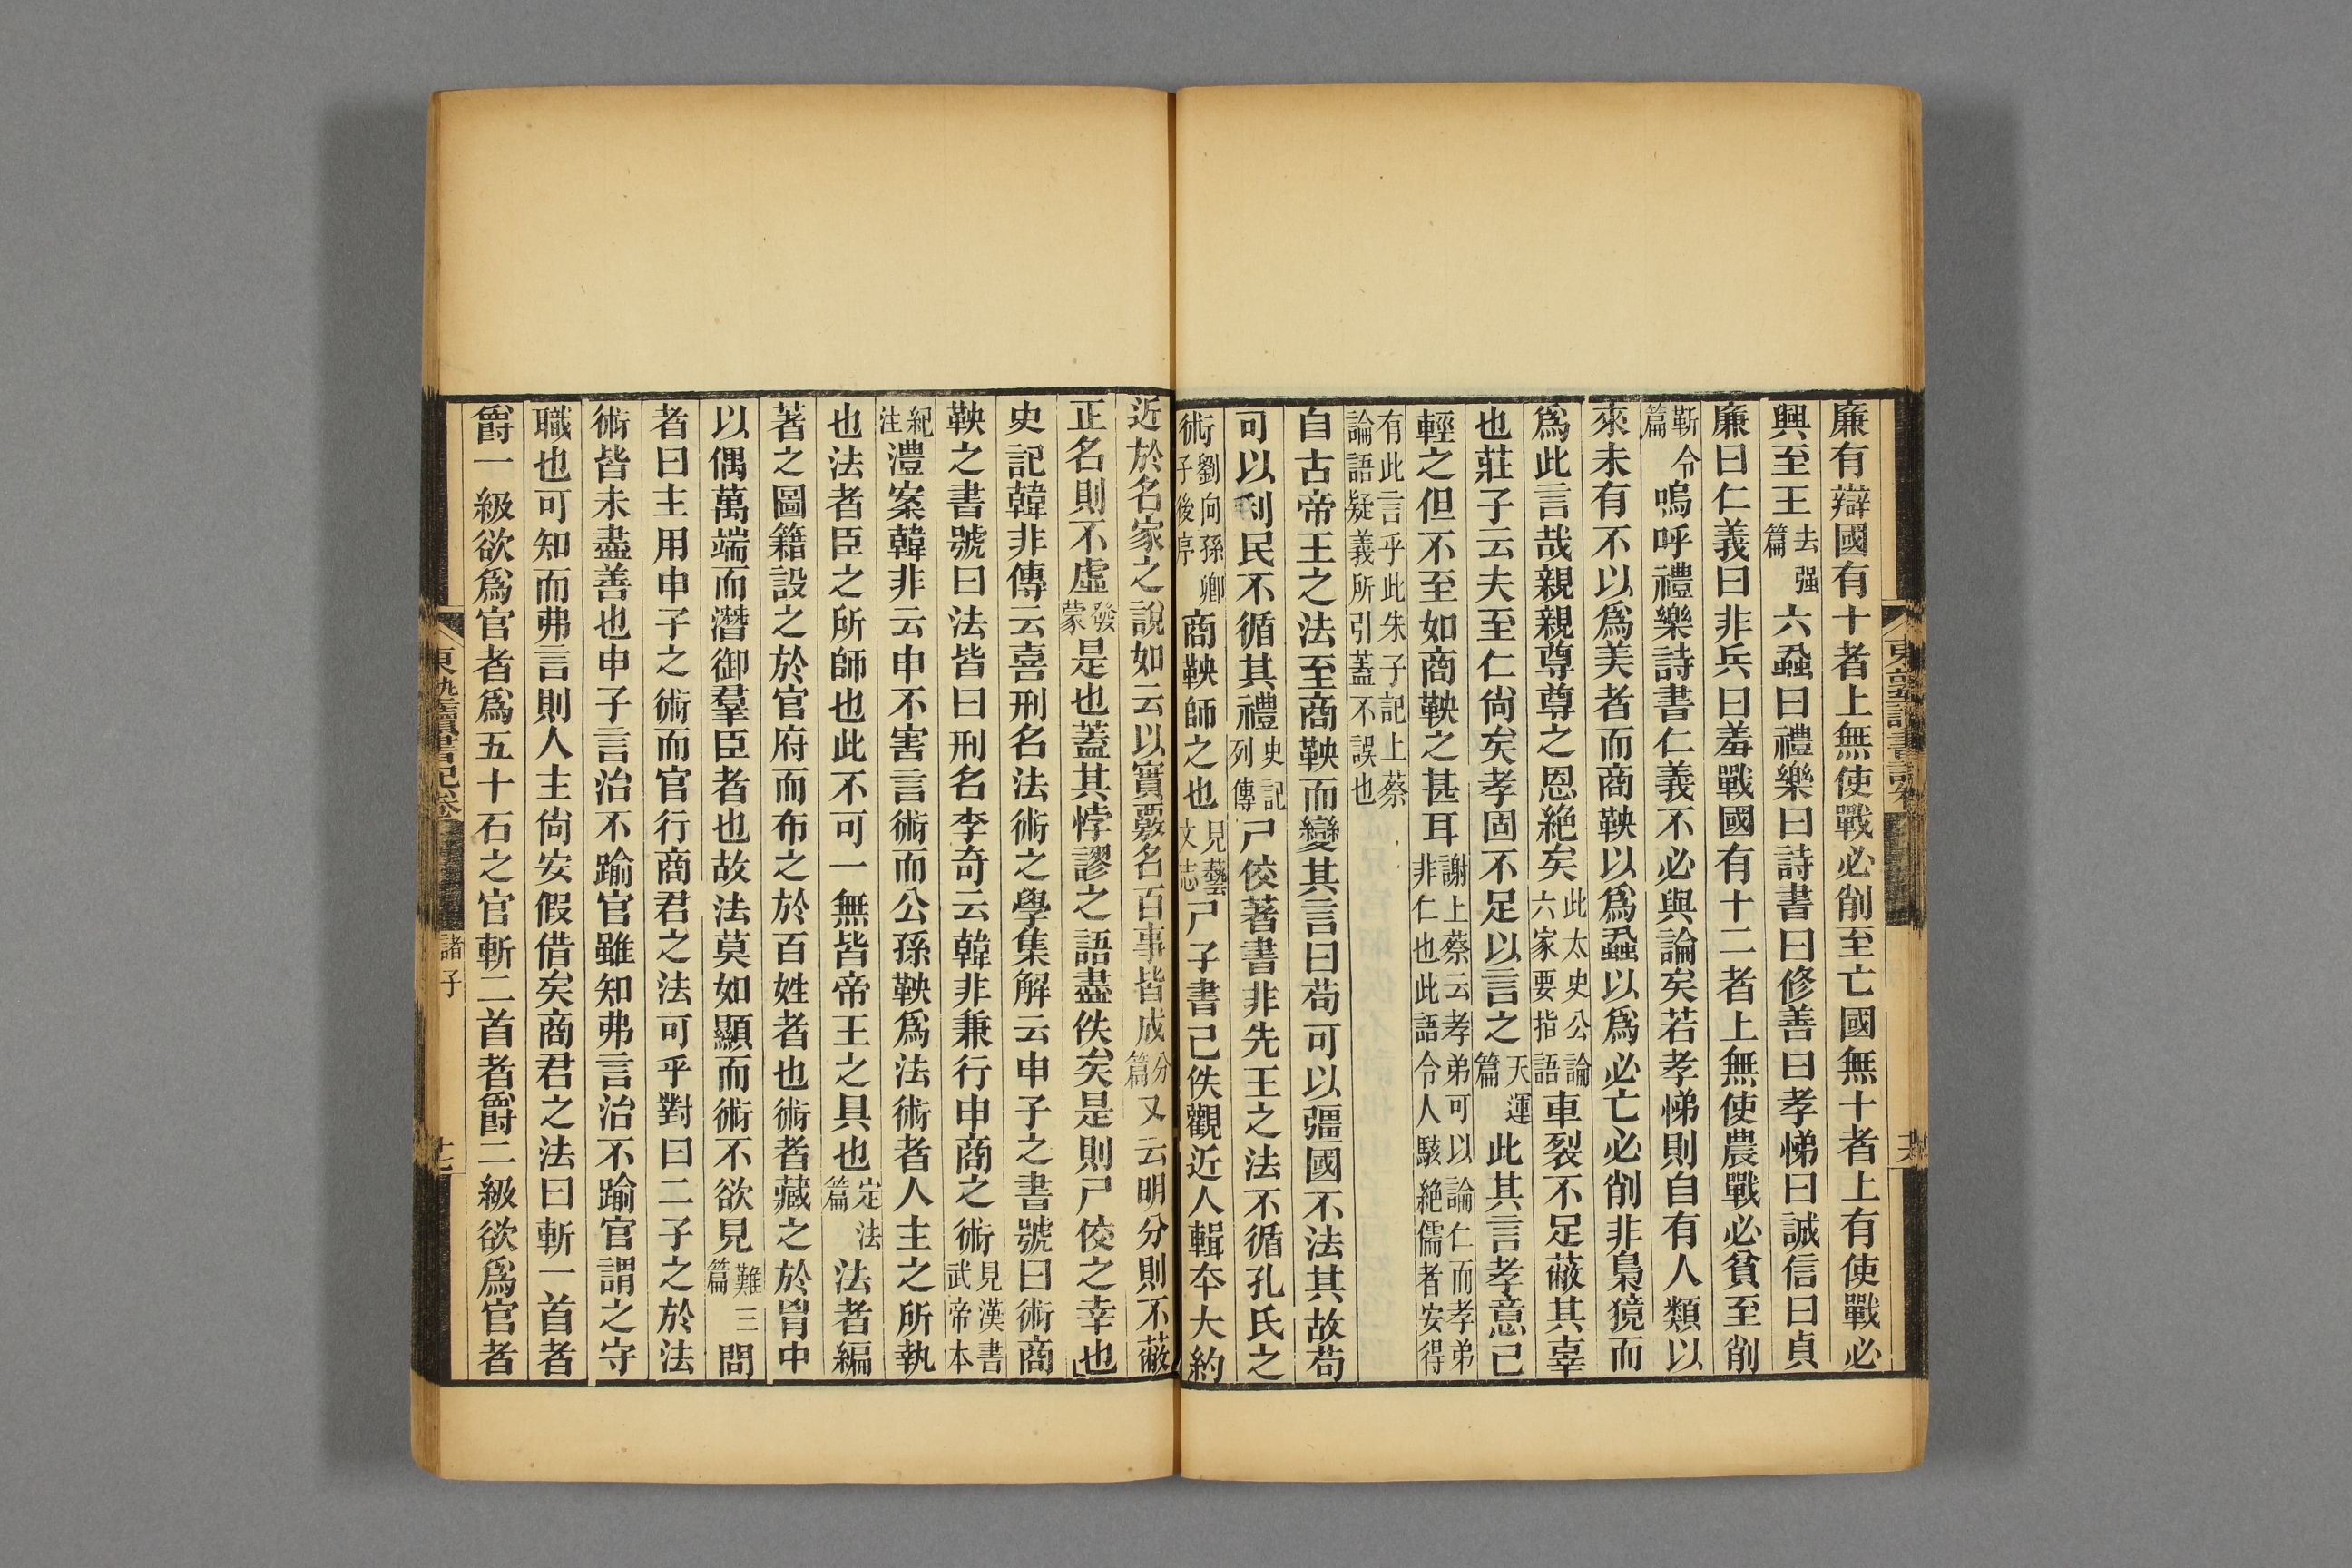 廉有辯國有十者上無使戰必削至亡國無十者上有使戰必
興至王去强篇六蝨曰禮樂曰詩書曰修善曰孝悌曰誠信曰貞
廉曰仁義曰非兵曰羞戰國有十二者上無使農戰必貧至削
靳令篇嗚呼禮樂詩書仁義不必與論矣若孝悌則自有人類以
來未有不以爲美者而商鞅以爲蝨以爲必亡必削非梟獍而
爲此言哉親親尊尊之恩絶矣此太史公論六家要指語車裂不足蔽其辜
也莊子云夫至仁尚矣孝固不足以言之天運篇此其言孝意己
輕之但不至如商鞅之甚耳謝上蔡云孝弟可以論仁而孝弟非仁也此語令人駭絶儒者安得
有此言乎此朱子記上蔡論語疑義所引蓋不誤也
自古帝王之法至商鞅而變其言曰苟可以彊國不法其故苟
可以利民不循其禮史記列傳尸佼著書非先王之法不循孔氏之
術劉向孫卿子後序商鞅師之也見藝文志尸子書已佚觀近人輯本大約
近於名家之說如云以實覈名百事皆成分篇又云明分則不蔽
正名則不虛發蒙是也蓋其悖謬之語盡佚矣是則尸佼之幸也
史記韓非傳云喜刑名法術之學集解云申子之書號曰術商
鞅之書號曰法皆曰刑名李奇云韓非兼行申商之術見漢書武帝本
紀注澧案韓非云申不害言術而公孫鞅爲法術者人主之所執
也法者臣之所師也此不可一無皆帝王之具也定法篇法者編
著之圖籍設之於官府而布之於百姓者也術者藏之於胷中
以偶萬端而潛御羣臣者也故法莫如顯而術不欲見難三篇問
者曰主用申子之術而官行商君之法可乎對曰二子之於法
術皆未盡善也申子言治不踰官雖知弗言治不踰官謂之守
職也可知而弗言則人主尚安假借矣商君之法曰斬一首者
爵一級欲爲官者爲五十石之官斬二首者爵二級欲爲官者
東塾讀書記卷
諸子